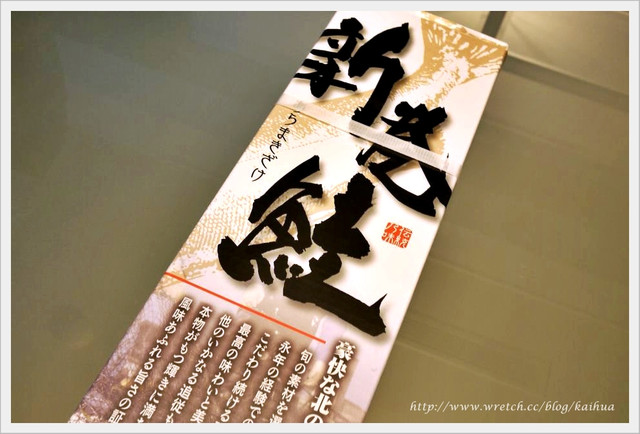 新巻
らまきざけ
鮭
豪快な北の
旬の素材を
永年の経験で
こだわり続ける
最高の味わいと美
他のいかなる追従も
本物がもつ輝きに満
風味あふれる旨さの証
http://www.wretch.cc/blog/kaihua